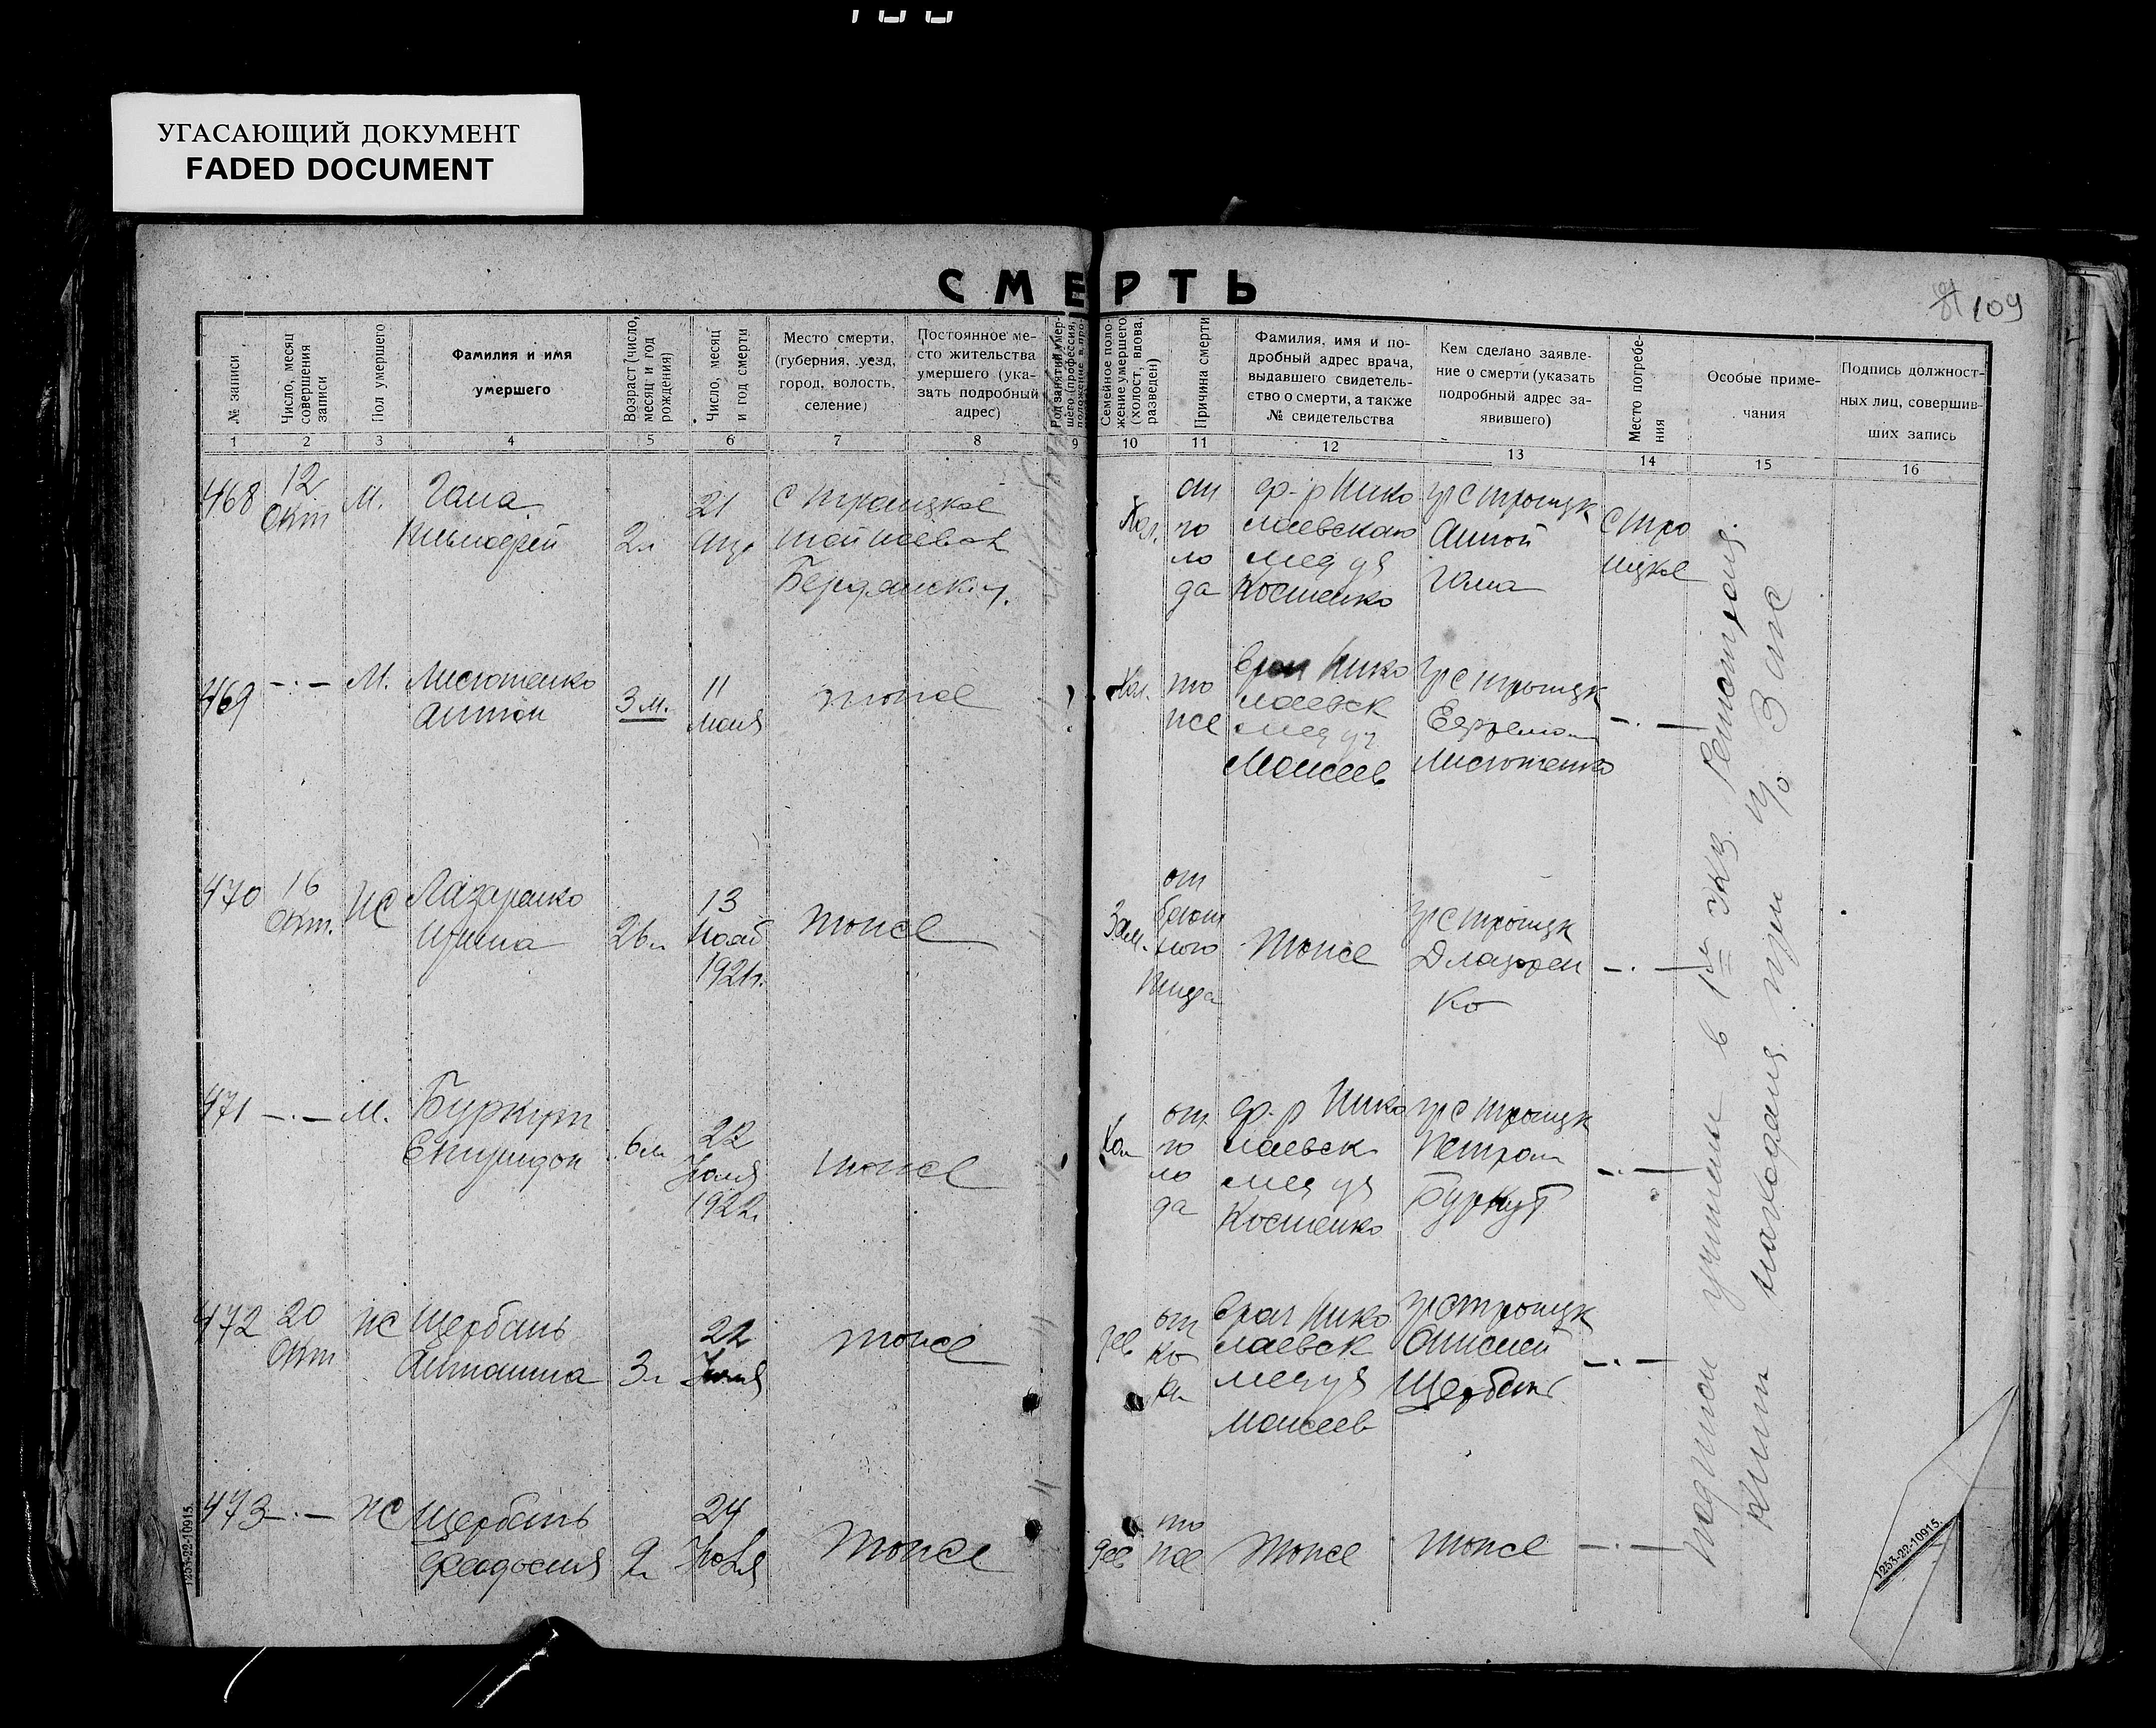 УГАСАЮЩИЙ ДОКУМЕНТ
FADED DOCUMENT
СМЕРТЬ
109
№ записи
Число, месяц совершения записи
Пол умершего
Фамилия и имя
умершего
Возраст (число, месяц и год рождения)
Число, месяц и год смерти
Место смерти,
(губерния, уезд,
город, волость,
селение)
Постоянное ме-
сто жительства
умершего (ука-
зать подробный
адрес)
Род занятий умер-
шего (профессия,
положение в про-
Семейное поло-
жение умершего
(холост, вдова,
разведен)
Причина смерти
Фамилия, имя и по-
дробный адрес врача,
выдавшего свидетель-
ство о смерти, а также
№ свидетельства
Кем сделано заявле-
ние о смерти (указать
подробный адрес за-
явившего)
Место погребе-
ния
Особые приме-
чания
Подпись должност-
ных лиц, совершив-
ших запись
1 2 3 4 5 6 7 8 9 10 11 12 13 14 15 16
468 12 Окт М. Гама
2л 21
с Троицкое
Бердянск у.
Хол. от го ло да
ф-р Нико
лаевского
мед уч
Костенко
гр с Троицк
Анной
Гама
с Тро
ицкое
469 -·- М. Лисютенко
Антон
3 м. 11 мая
тоже
Хол. то же
врач Нико
лаевск
мед уч
Моисеев
гр с Троицк
Ефремом
Лисютенко
-·-
470 16 Окт. Ж Лазаренко
Ирина
26л 13 Нояб 1921г.
тоже
Зам. от брюш ного тифа
тоже
гр с Троицк
Д Лазарен
ко
-·-
471 -·- М. Буркут
Спиридон
6л 22 Июля 1922г
тоже
Хол от го ло да
ф-р Нико
лаевск
мед уч
Костенко
гр с Троицк
Петром
Буркут
-·-
472 20 Окт Ж Щербань
Антонина
3л 22 Июля
тоже
дев от ко ри
врач Нико
лаевск
мед уч
Моисеев
гр с Троицк
Анисией
Щербань
-·-
473 -·- Ж Щербань
Феодосия
2л 24 Июля
тоже
дев то же
тоже
тоже
-·-
подписи учинены в 1м экз. Регистрация
книги находящ. при
1253-22-10915.
1253-22-10915.